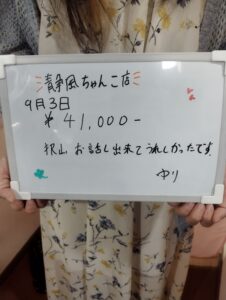 静風ちゃんこ店
9月3日
¥41,000-
沢山 お話し出来てうれしかったです
ゆり